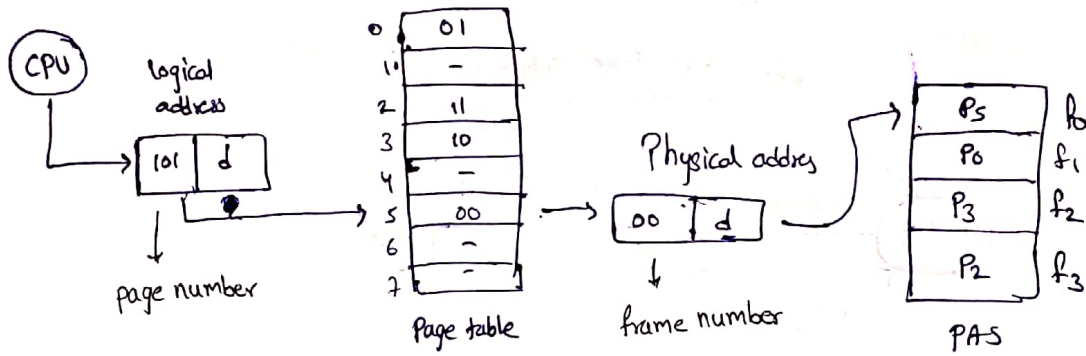 CPU
logical
address
101 d
page number
0 01
1 -
2 11
3 10
4 -
5 00
6 -
7 -
Page table
Physical addres
00 d
frame number
P5 f0
P0 f1
P3 f2
P2 f3
PAS